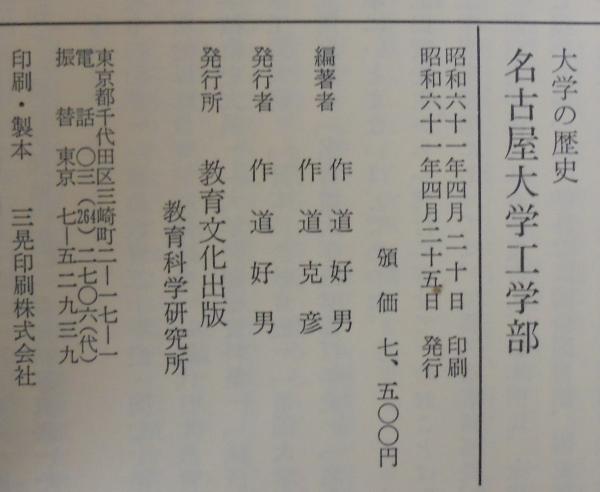 大学の歴史
名古屋大学工学部
昭和六十一年四月二十日 印刷
昭和六十一年四月二十五日 発行
頒価 七、五〇〇円
編著者 作道好男
作道克彦
発行者 作道好男
発行所 教育文化出版
教育科学研究所
東京都千代田区三崎町二―一七―一
電話 〇三(264)二七〇六(代)
振替 東京 七―五二九三九
印刷・製本 三晃印刷株式会社